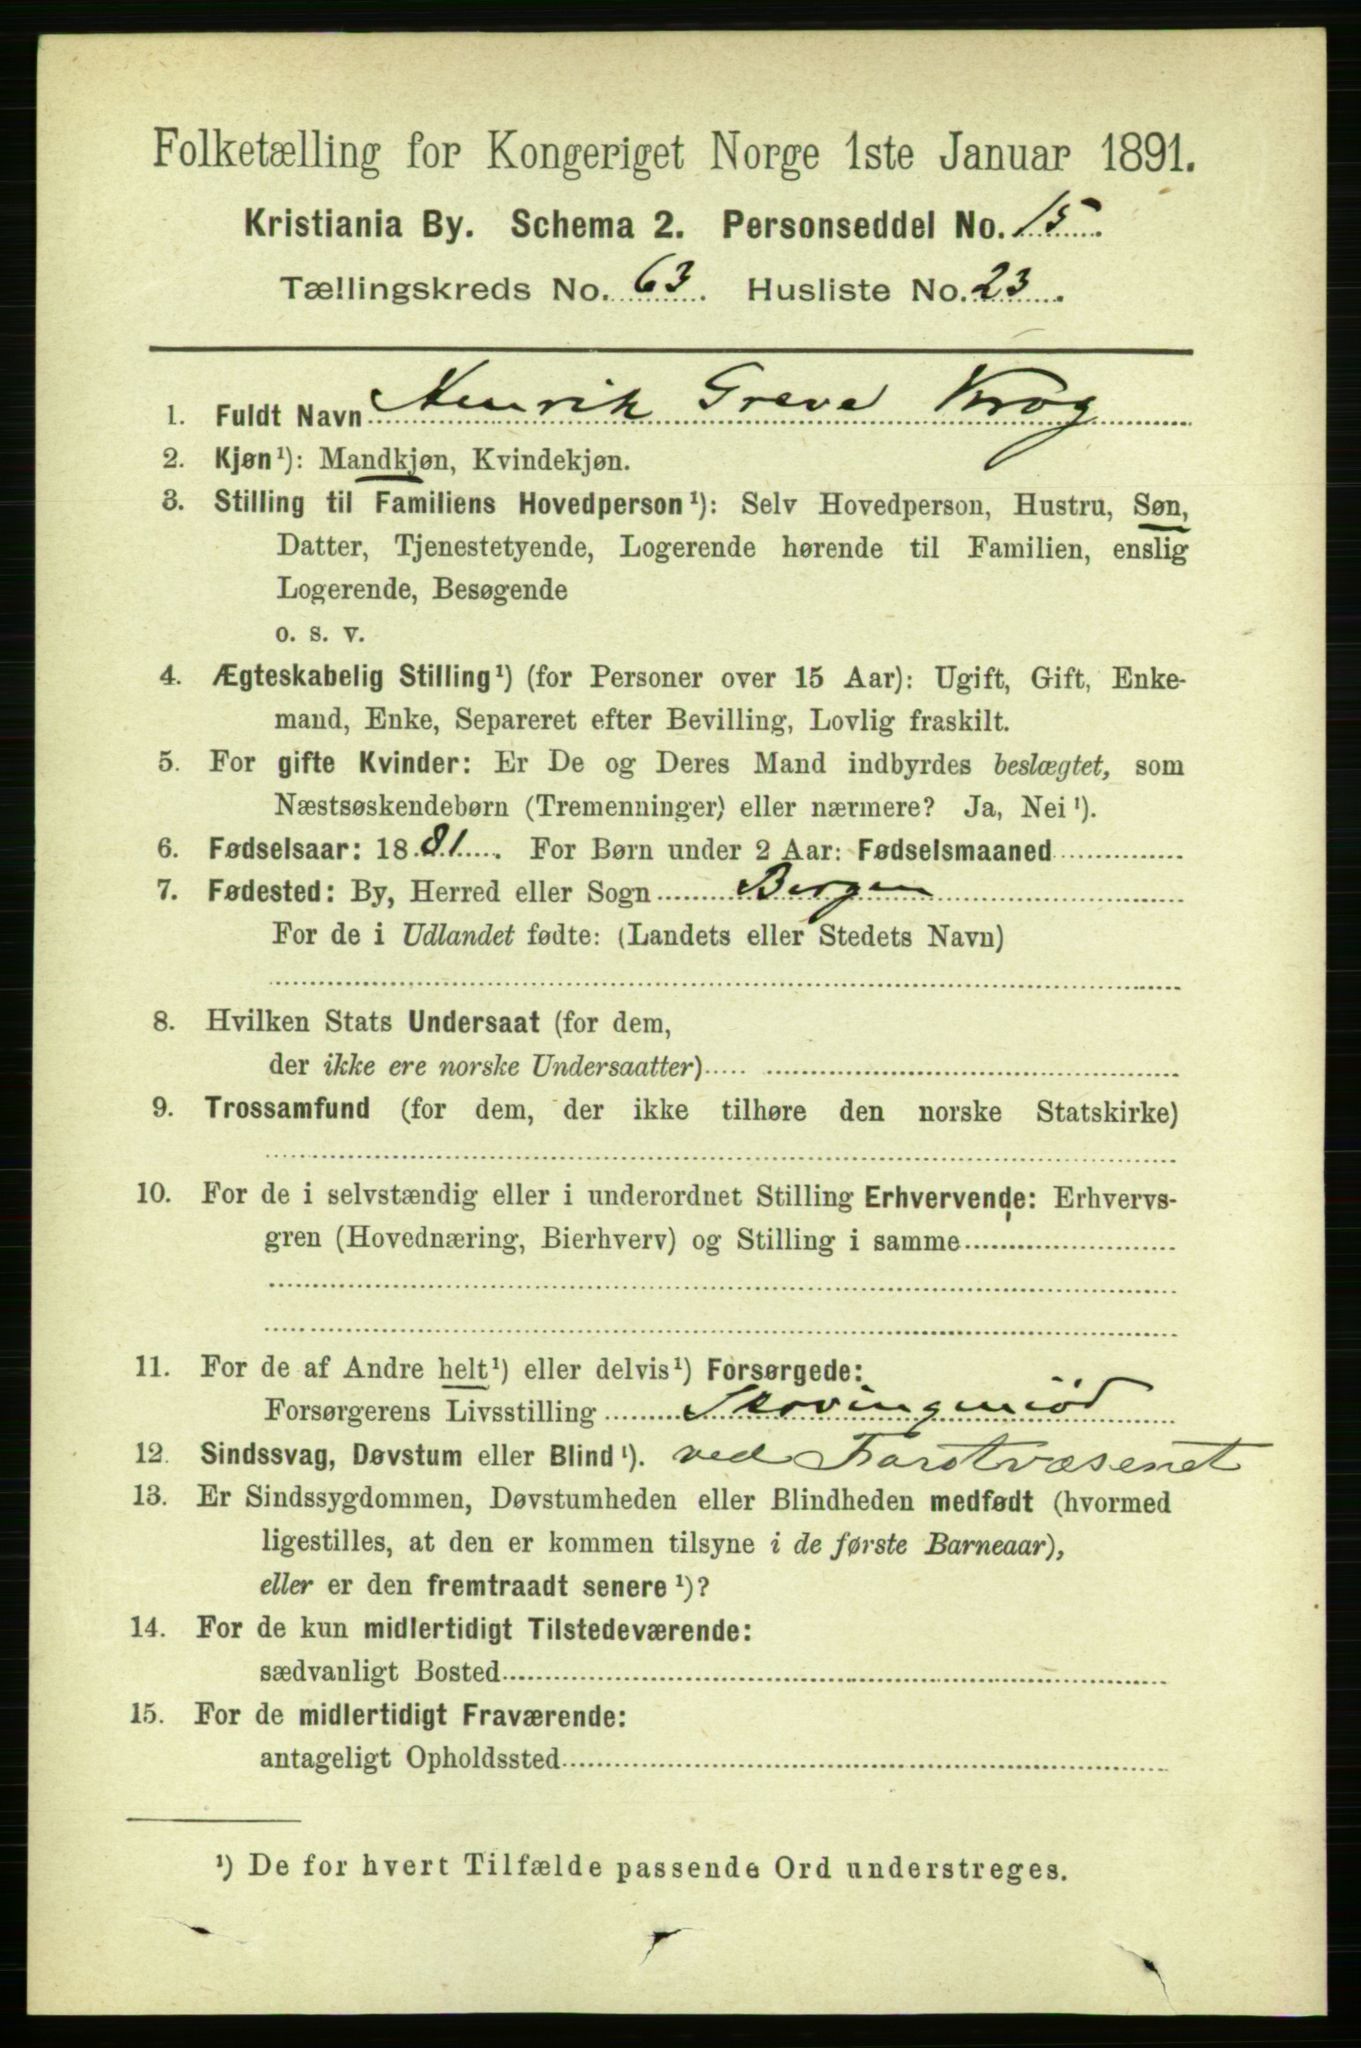 Folketælling for Kongeriget Norge 1ste Januar 1891.
Kristiania By. Schema 2. Personseddel No. 15
Tællingskreds No. 63. Husliste No. 23.
1. Fuldt Navn Henrik Greve Krog
2. Kjøn ¹): Mandkjøn, Kvindekjøn.
3. Stilling til Familiens Hovedperson ¹): Selv Hovedperson, Hustru, Søn,
Datter, Tjenestetyende, Logerende hørende til Familien, enslig
Logerende, Besøgende
o. s. v.
4. Ægteskabelig Stilling ¹) (for Personer over 15 Aar): Ugift, Gift, Enke-
mand, Enke, Separeret efter Bevilling, Lovlig fraskilt.
5. For gifte Kvinder: Er De og Deres Mand indbyrdes beslægtet, som
Næstsøskendebørn (Tremenninger) eller nærmere? Ja, Nei ¹).
6. Fødselsaar: 1881. For Børn under 2 Aar: Fødselsmaaned
7. Fødested: By, Herred eller Sogn Bergen
For de i Udlandet fødte: (Landets eller Stedets Navn)
8. Hvilken Stats Undersaat (for dem,
der ikke ere norske Undersaatter)
9. Trossamfund (for dem, der ikke tilhøre den norske Statskirke)
10. For de i selvstændig eller i underordnet Stilling Erhvervende: Erhvervs-
gren (Hovednæring, Bierhverv) og Stilling i samme
11. For de af Andre helt ¹) eller delvis ¹) Forsørgede:
Forsørgerens Livsstilling
12. Sindssvag, Døvstum eller Blind ¹). ved
13. Er Sindssygdommen, Døvstumheden eller Blindheden medfødt (hvormed
ligestilles, at den er kommen tilsyne i de første Barneaar),
eller er den fremtraadt senere ¹)?
14. For de kun midlertidigt Tilstedeværende:
sædvanligt Bosted
15. For de midlertidigt Fraværende:
antageligt Opholdssted
¹) De for hvert Tilfælde passende Ord understreges.